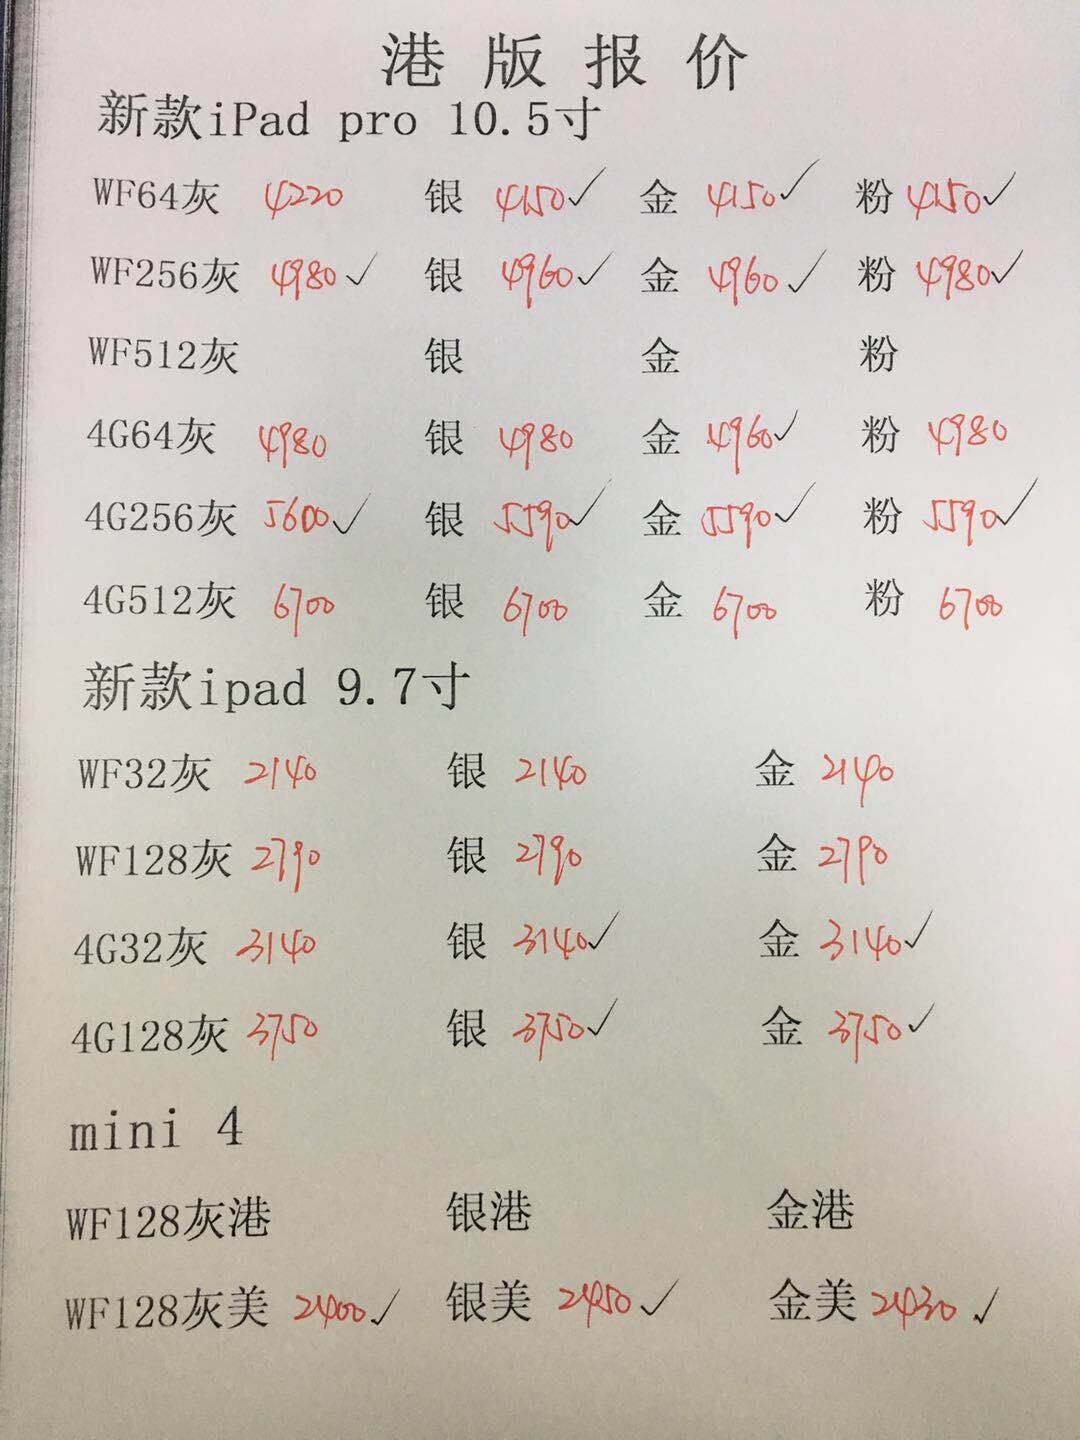 港版报价
新款iPad pro 10.5寸
WF64灰 4220 银 4150✓ 金 4150✓ 粉 4150✓
WF256灰 4980✓ 银 4960✓ 金 4960✓ 粉 4980✓
WF512灰 银 金 粉
4G64灰 4980 银 4980 金 4960✓ 粉 4980
4G256灰 5600✓ 银 5590✓ 金 5590✓ 粉 5590✓
4G512灰 6700 银 6700 金 6700 粉 6700
新款ipad 9.7寸
WF32灰 2140 银 2140 金 2140
WF128灰 2790 银 2790 金 2790
4G32灰 3140 银 3140✓ 金 3140✓
4G128灰 3750 银 3750✓ 金 3750✓
mini 4
WF128灰港 银港 金港
WF128灰美 2400✓ 银美 2450✓ 金美 2430✓